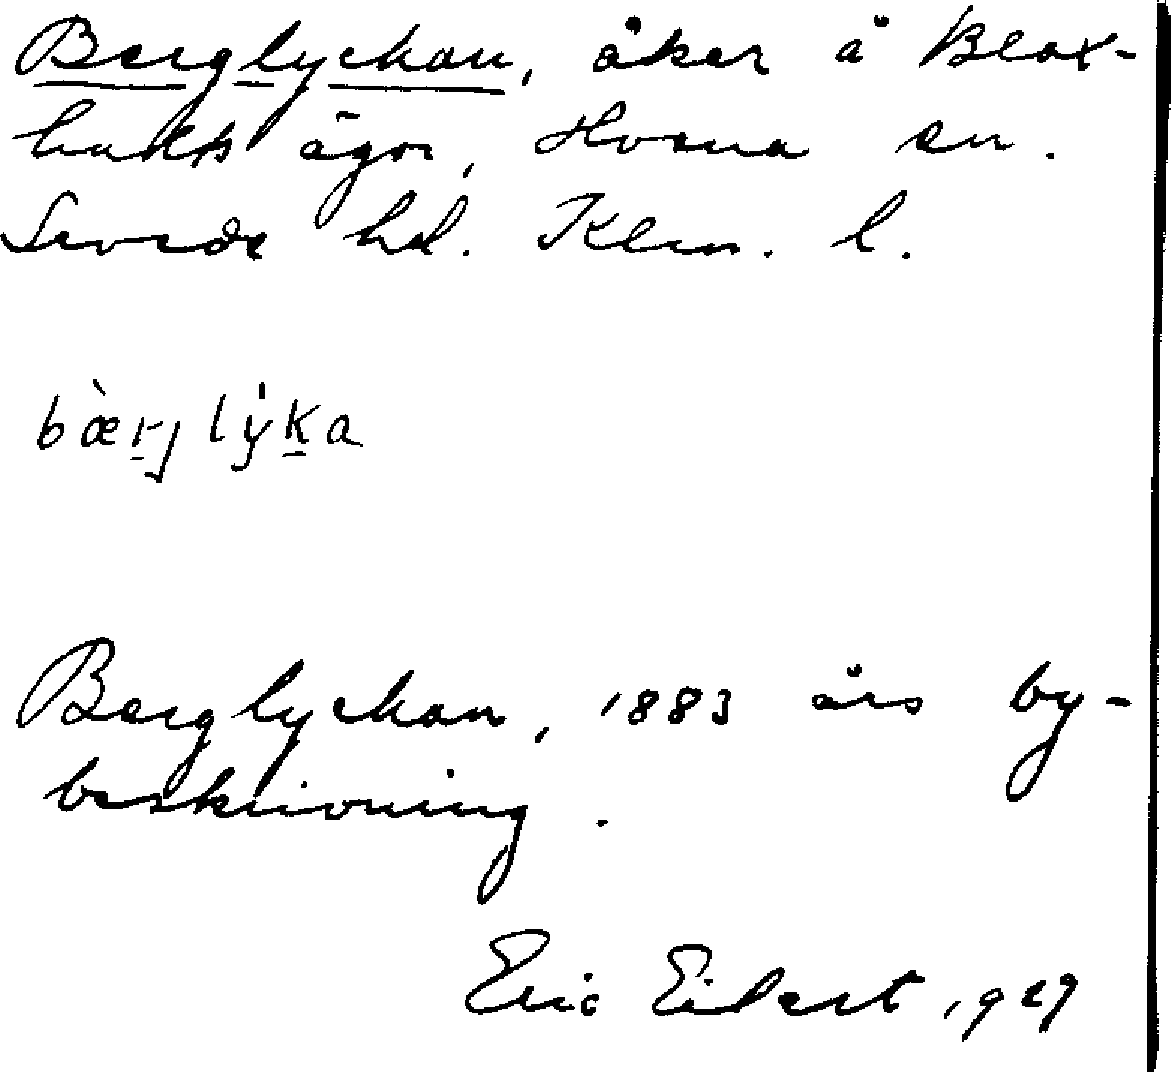 Berglyckan, åker å Blax-
hults ägor, Hvena sn.
Sevede hd. Klm. l.
bæ̀rjlẏka
Berglyckan, 1883 års by-
beskrivning.
Eric Eilert, 1927